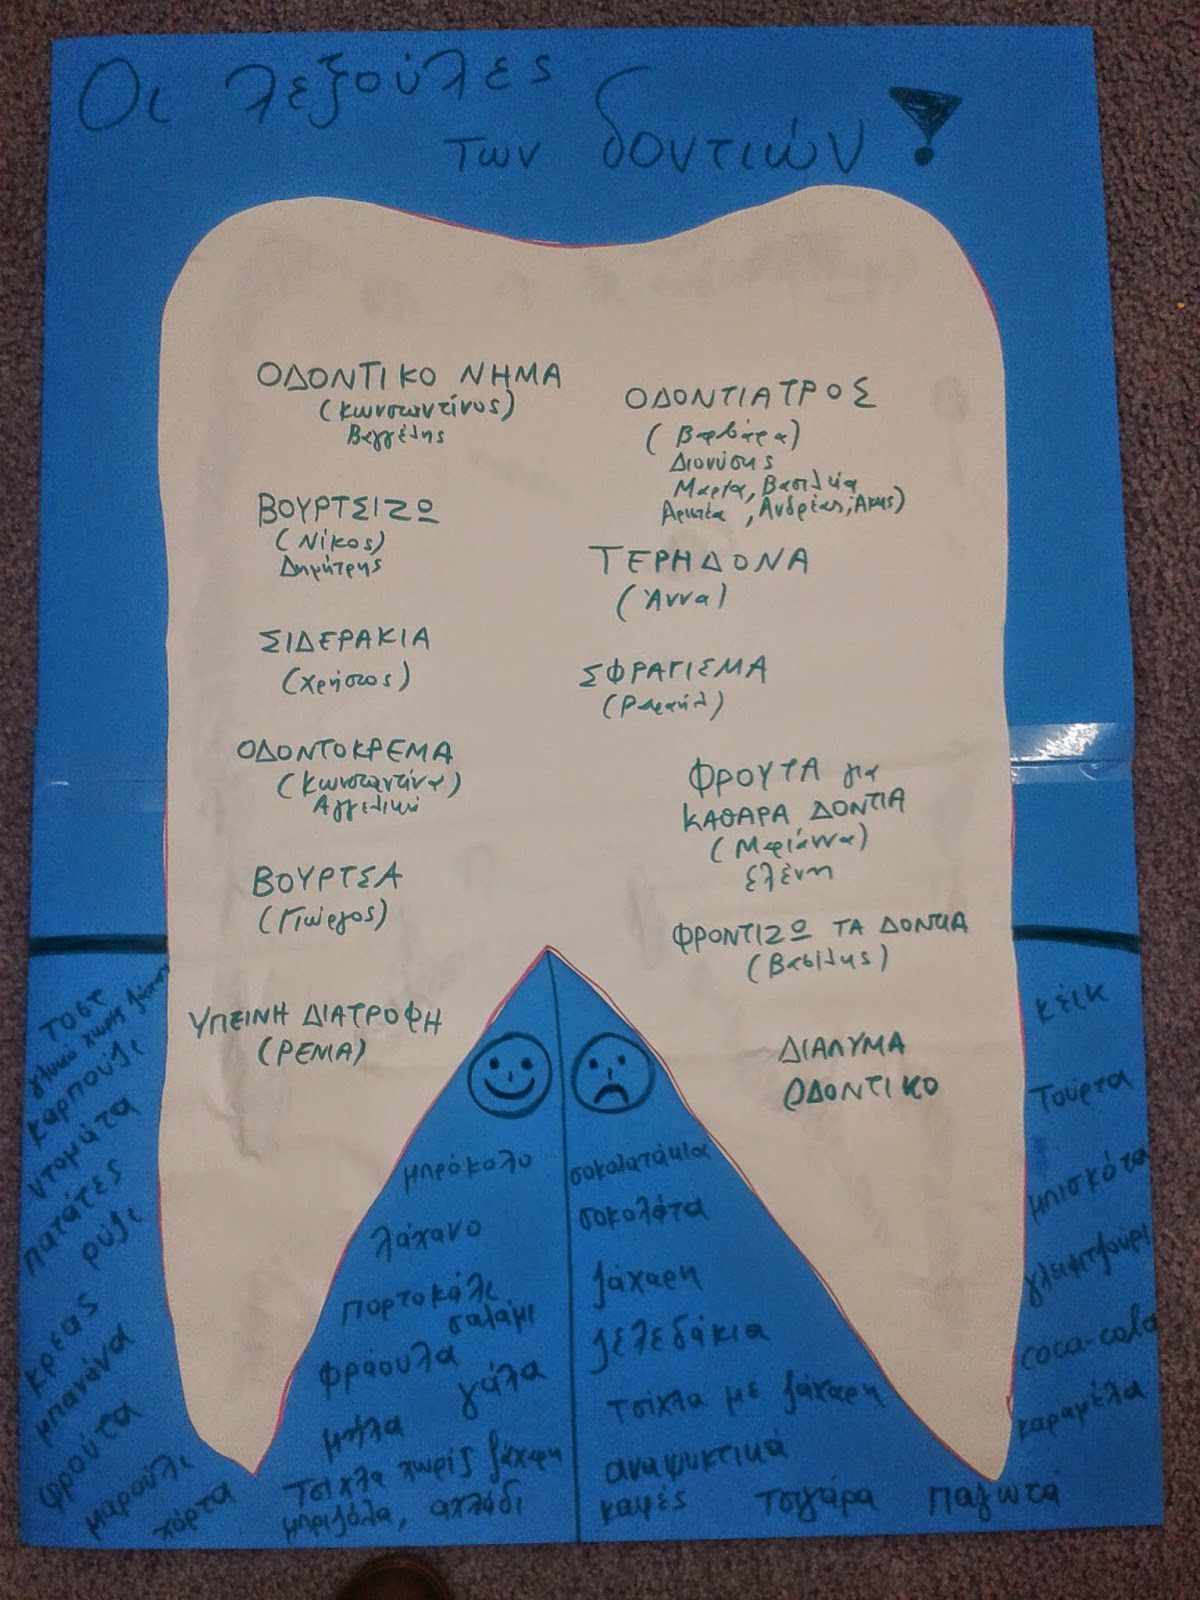 Οι λεξούλες
των δοντιών!
ΟΔΟΝΤΙΚΟ ΝΗΜΑ
(Κωνσταντίνος)
Βαγγέλης
ΒΟΥΡΤΣΙΖΩ
(Νίκος)
Δημήτρης
ΣΙΔΕΡΑΚΙΑ
(Χρήστος)
ΟΔΟΝΤΟΚΡΕΜΑ
(Κωνσταντίνα)
Αγγελική
ΒΟΥΡΤΣΑ
(Γιώργος)
ΥΠΕΙΝΗ ΔΙΑΤΡΟΦΗ
(ΡΕΝΙΑ)
ΟΔΟΝΤΙΑΤΡΟΣ
(Βαρβάρα)
Διονύσης
Μαρία, Βασιλεία
Αριστέα, Ανδρέας, Άκης)
ΤΕΡΗΔΟΝΑ
(Άννα)
ΣΦΡΑΓΙΣΜΑ
(Ραφαήλ)
ΦΡΟΥΤΑ για
ΚΑΘΑΡΑ ΔΟΝΤΙΑ
(Μαριάννα)
Ελένη
ΦΡΟΝΤΙΖΩ ΤΑ ΔΟΝΤΙΑ
(Βασίλης)
ΔΙΑΛΥΜΑ
ΟΔΟΝΤΙΚΟ
τοστ
γλυκό χωρίς ζάχαρη
καρπούζι
ντομάτα
πατάτες
ρύζι
κρέας
μπανάνα
φρούτα
μαρούλι
χόρτα
μπρόκολο
λάχανο
πορτοκάλι
σαλάμι
φράουλα
γάλα
μήλα
τσίχλα χωρίς ζάχαρη
μπριζόλα, αχλάδι
σοκολατάκια
σοκολάτα
ζάχαρη
ζελεδάκια
τσίχλα με ζάχαρη
αναψυκτικά
καφές τσιγάρα παγωτά
κέικ
τούρτα
μπισκότα
γλειφιτζούρι
coca-cola
καραμέλα